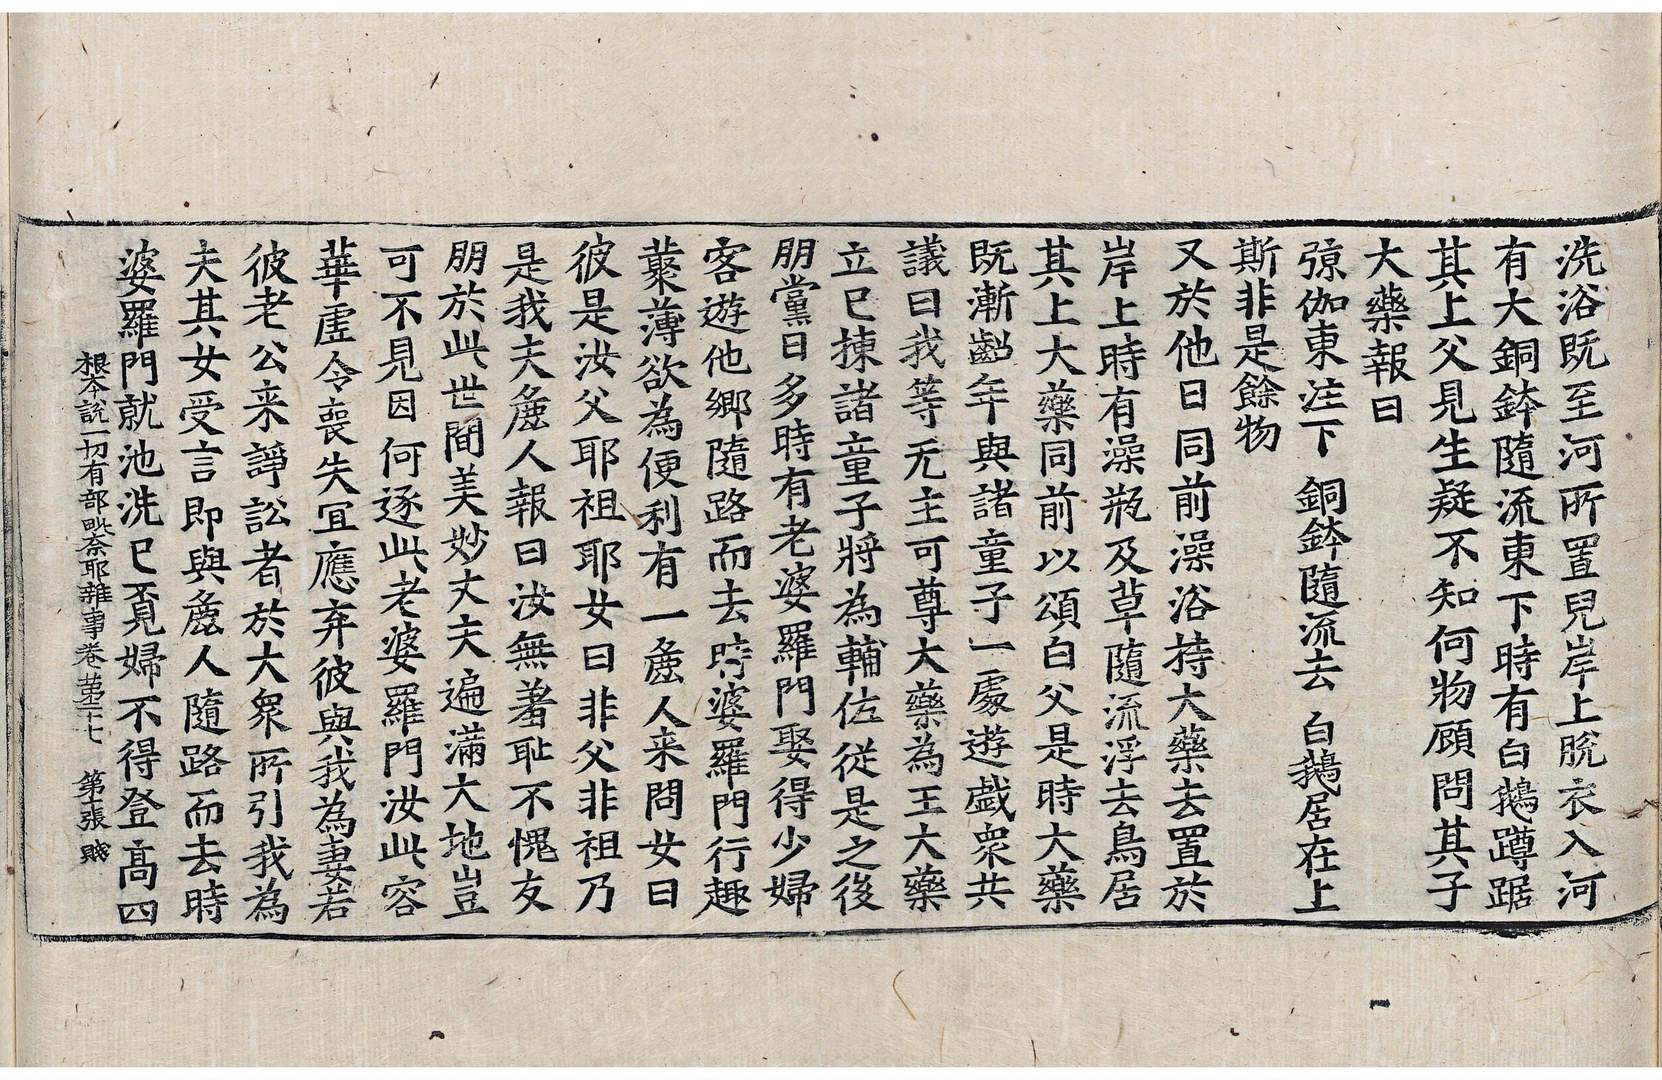 洗浴既至河所置兒岸上脫衣入河
有大銅鉢隨流東下時有白鵝蹲踞
其上父見生疑不知何物顧問其子
大藥報曰
弶伽東注下 銅鉢隨流去 白鵝居在上
斯非是餘物
又於他日同前澡浴持大藥去置於
岸上時有澡瓶及草隨流浮去鳥居
其上大藥同前以頌白父是時大藥
既漸齠年與諸童子一處遊戲衆共
議曰我等无主可尊大藥為王大藥
立已揀諸童子將為輔佐從是之後
朋黨日多時有老婆羅門娶得少婦
客遊他鄉隨路而去時婆羅門行趣
藂薄欲為便利有一麁人来問女曰
彼是汝父耶祖耶女曰非父非祖乃
是我夫麁人報曰汝無羞恥不愧友
朋於此世間美妙丈夫遍滿大地豈
可不見因何逐此老婆羅門汝此容
華虛令喪失冝應弃彼與我為妻若
彼老公来諍訟者於大衆所引我為
夫其女受言即與麁人隨路而去時
婆羅門就池洗已覓婦不得登高四
根本說一切有部毗奈耶雜事卷苐二十七 第十張 賤